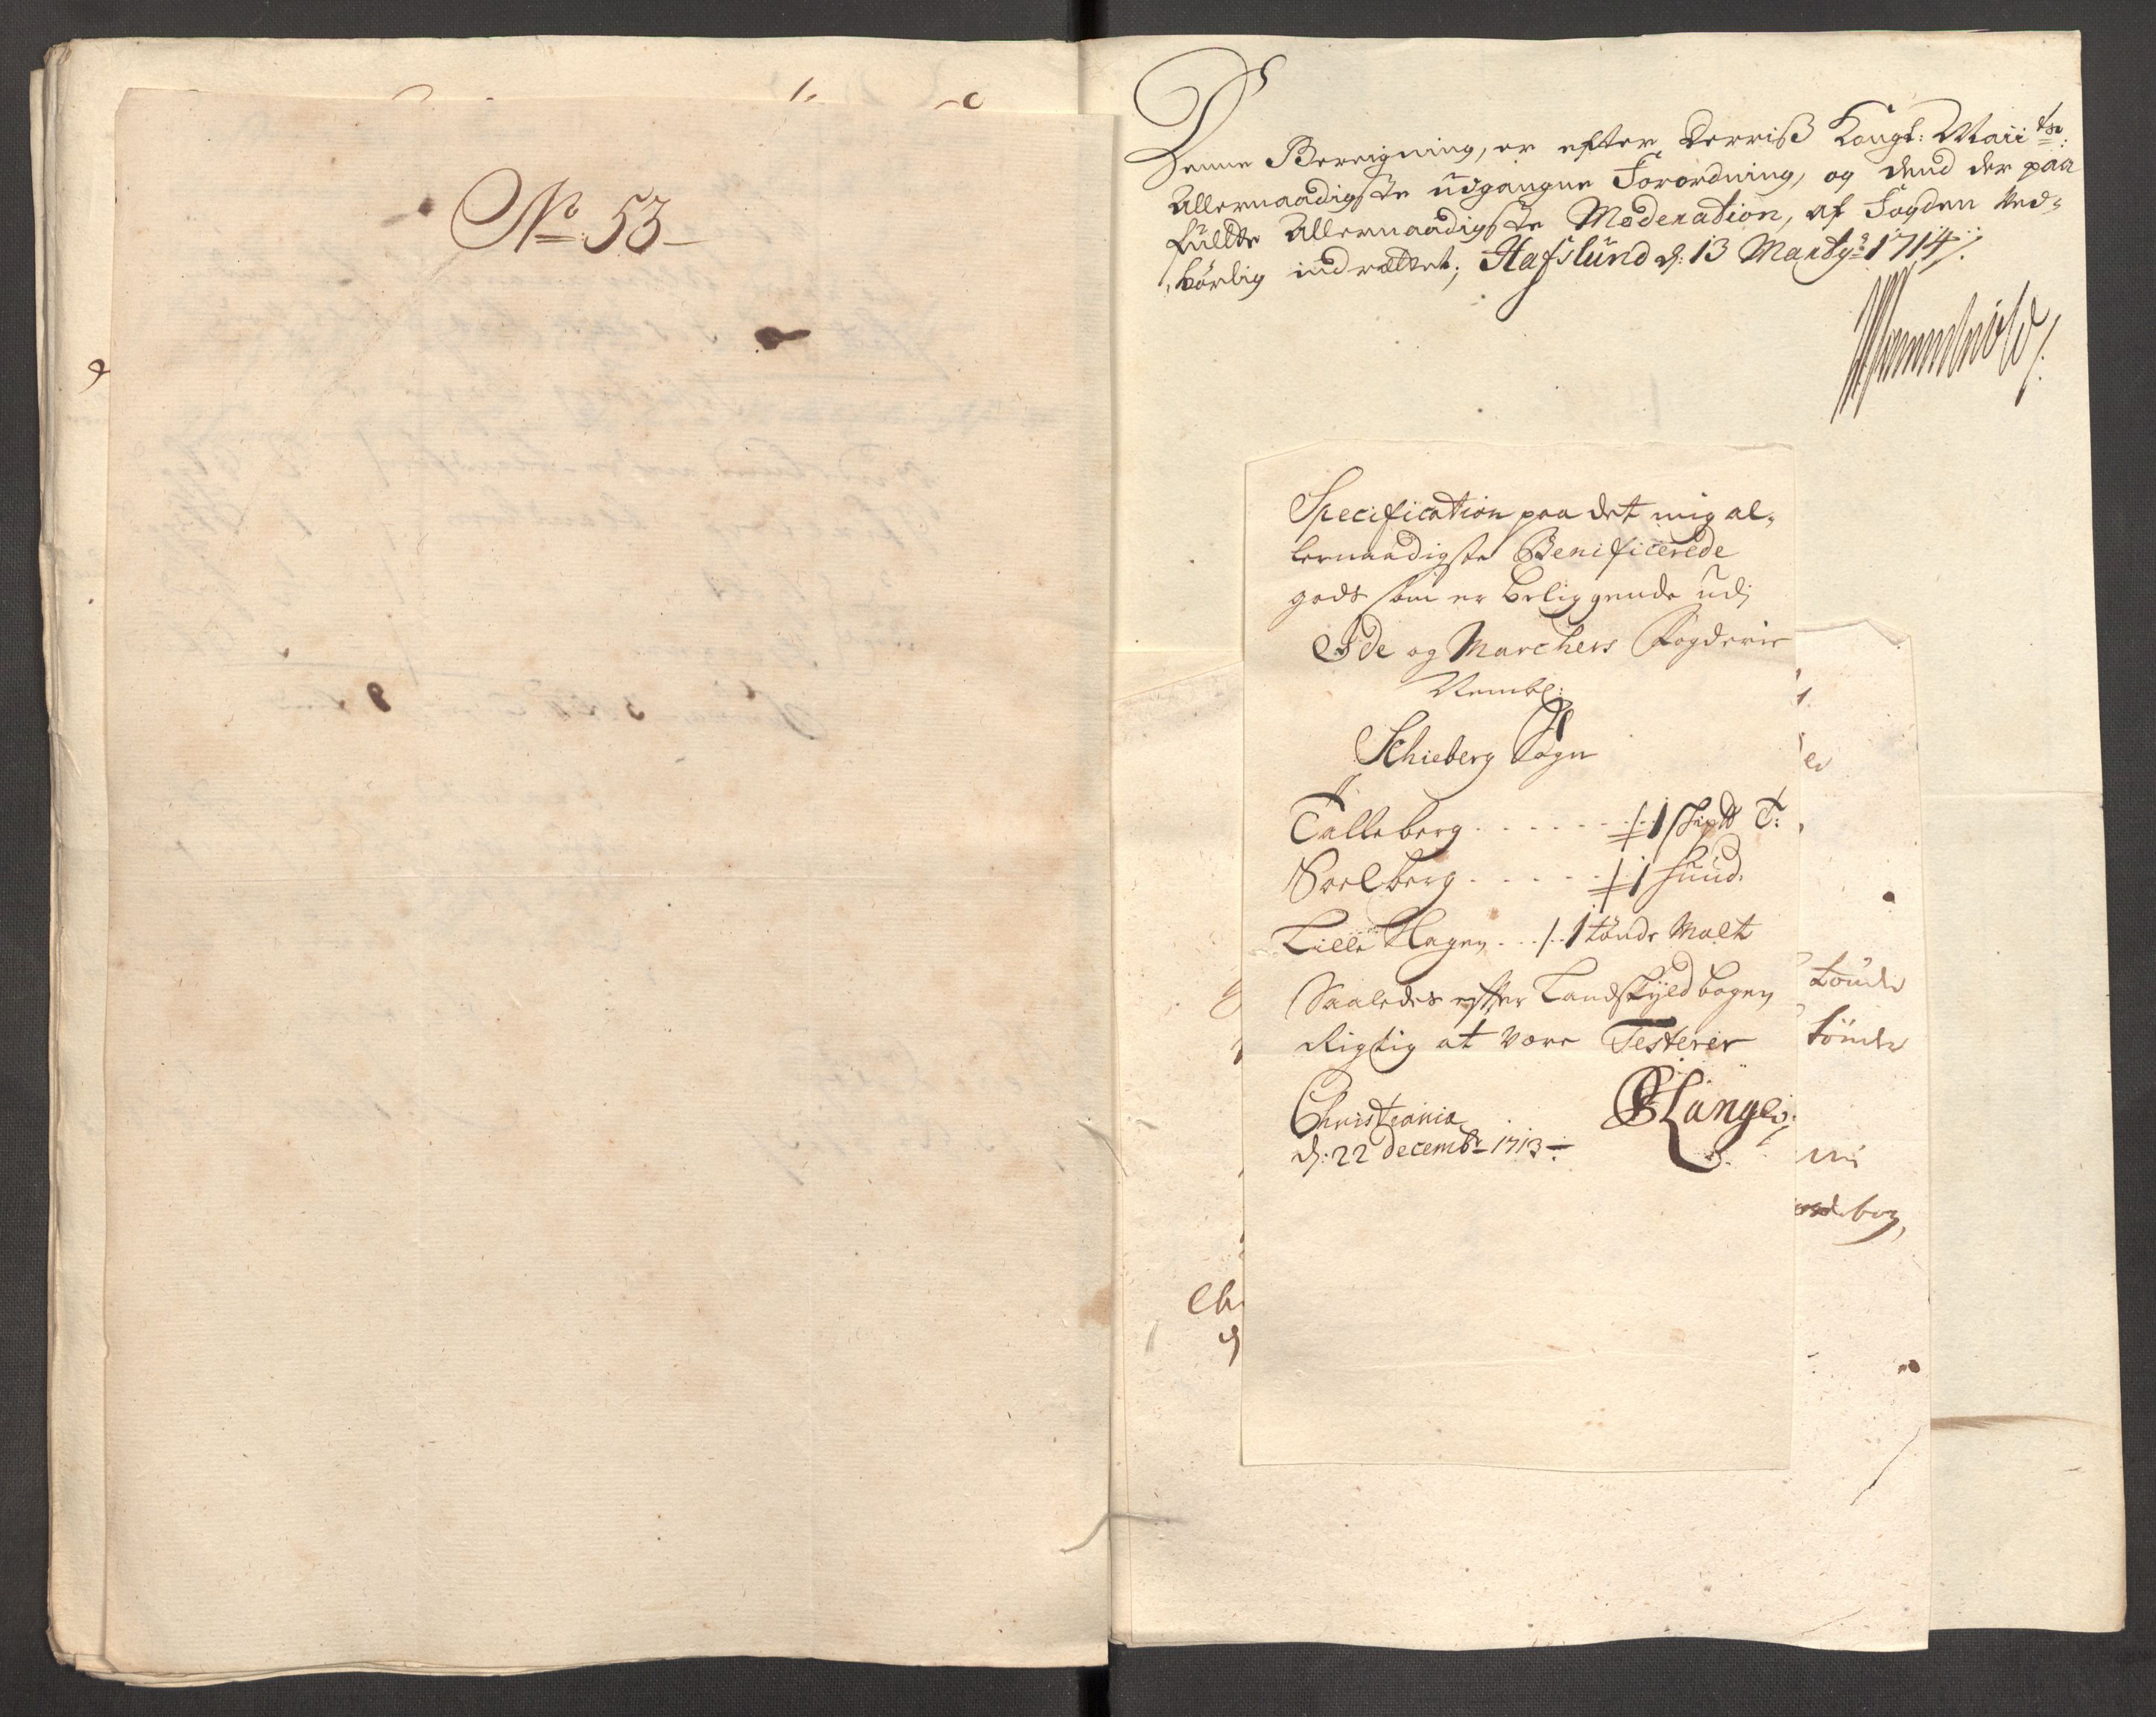 No 53
Denne Beregning, er efter Derriß Kongl: Maiits:
Allernaadigste udgangne Forordning, og dend der paa
fulte Allernaadigste Moderation, af Fogden Ved-
börlig indrættet; Hafslund d: 13 Marty 1714
Specification paa det mig al-
lernaadigste Benificerede
gods som er beliggende udj
Ide og Marchers Fogderie
Nembl:
Schieberg Sogn
Talleberg . . . . . . . 1 skp℔ T:
Soelberg . . . . . . 1 hund.
Lille Hagen . . . 1 tönde Malt
Saaledes efter Landskyld bogen
Rigtig at være Testerer
Christiania
d: 22 decembr 1713
Lange
tönde
tönde